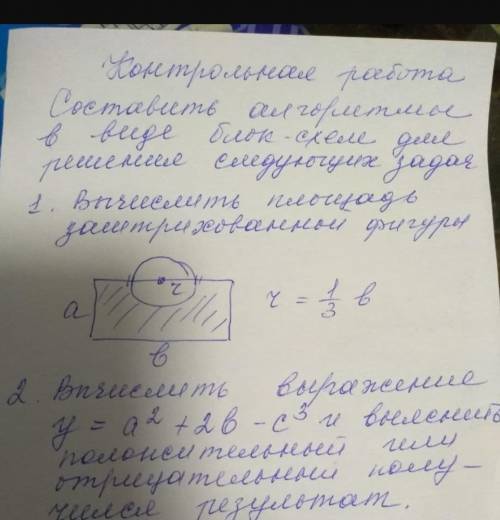 Контрольная работа
Составить алгоритмы
в виде блок-схем для
решения следующих задач
1. Вычислить площадь
заштрихованной фигуры
a r r = 1/3 в
в
2. Вычислить выражение
y = a² + 2в - c³ и выяснить
положительный или
отрицательный полу-
чился результат.